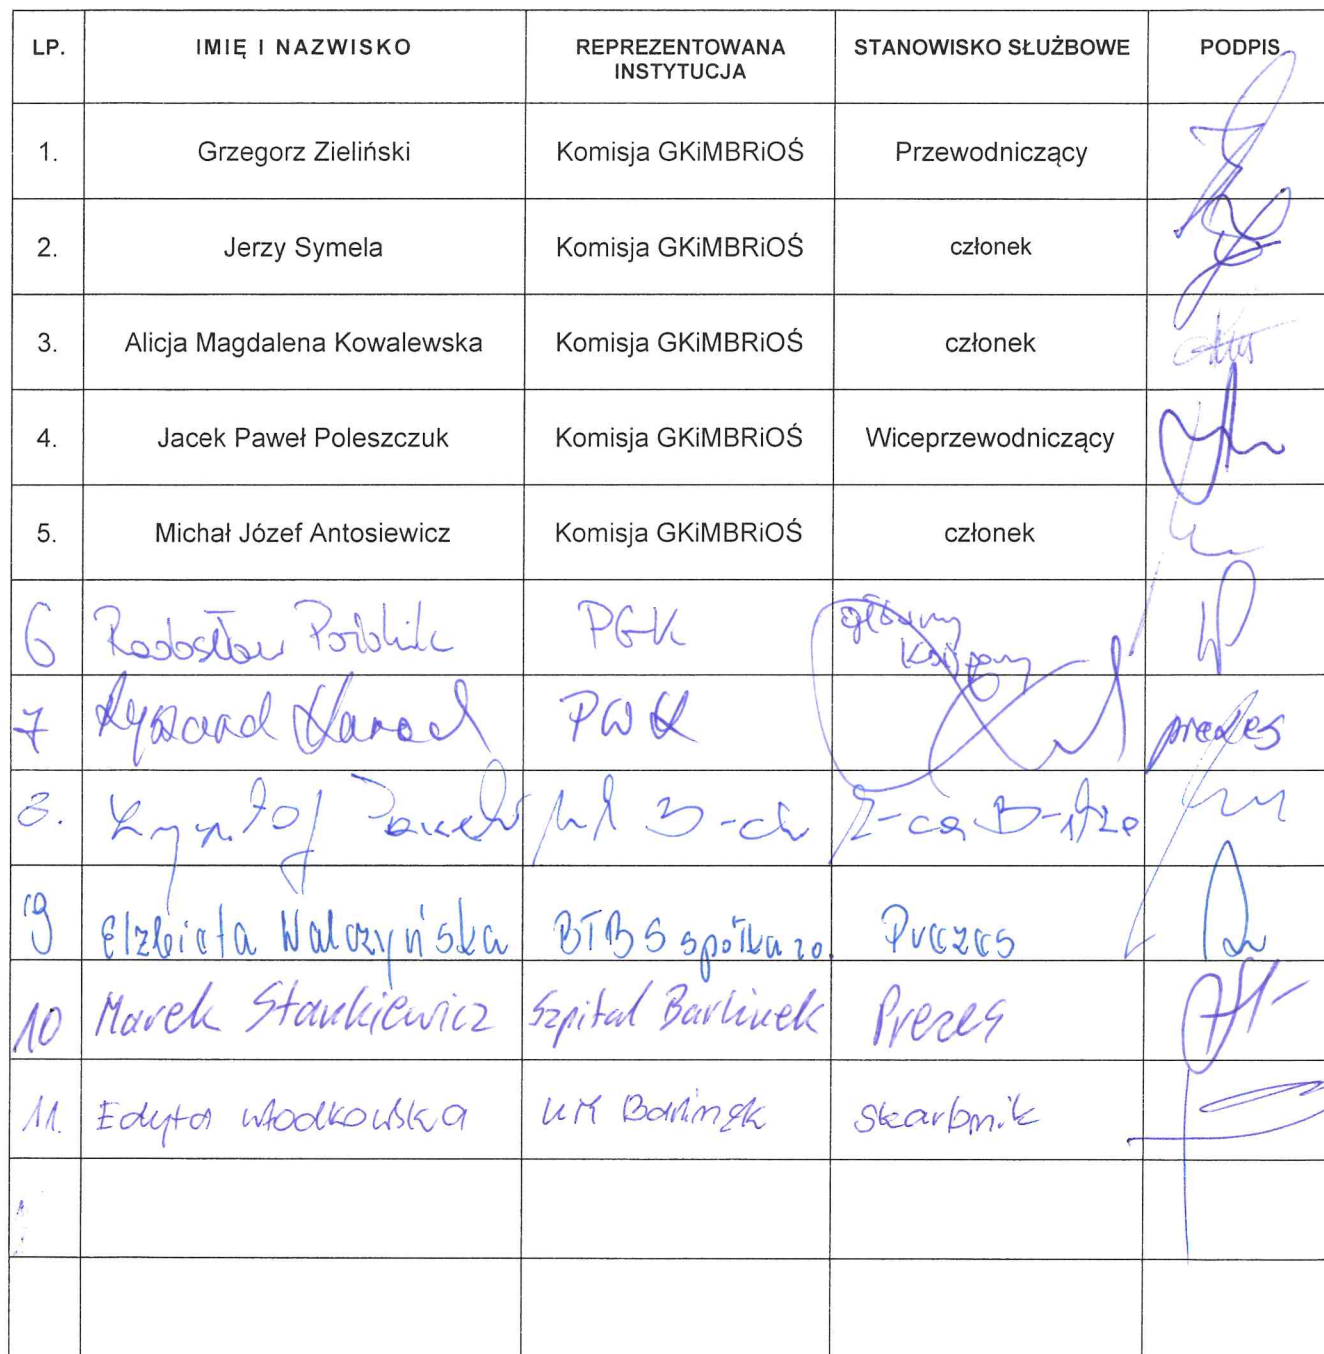 LP. IMIĘ I NAZWISKO REPREZENTOWANA INSTYTUCJA STANOWISKO SŁUŻBOWE PODPIS
1. Grzegorz Zieliński Komisja GKiMBRiOŚ Przewodniczący
2. Jerzy Symela Komisja GKiMBRiOŚ członek
3. Alicja Magdalena Kowalewska Komisja GKiMBRiOŚ członek
4. Jacek Paweł Poleszczuk Komisja GKiMBRiOŚ Wiceprzewodniczący
5. Michał Józef Antosiewicz Komisja GKiMBRiOŚ członek
6 Radosław PGK główny
7 Ryszard PWK prezes
8. Z-ca B-strza
9 Elżbieta Walczyńska BTBS spółka zo. Prezes
10 Marek Stankiewicz Szpital Barlinek Prezes
11. Edyta Włodkowska UM Barlinek skarbnik